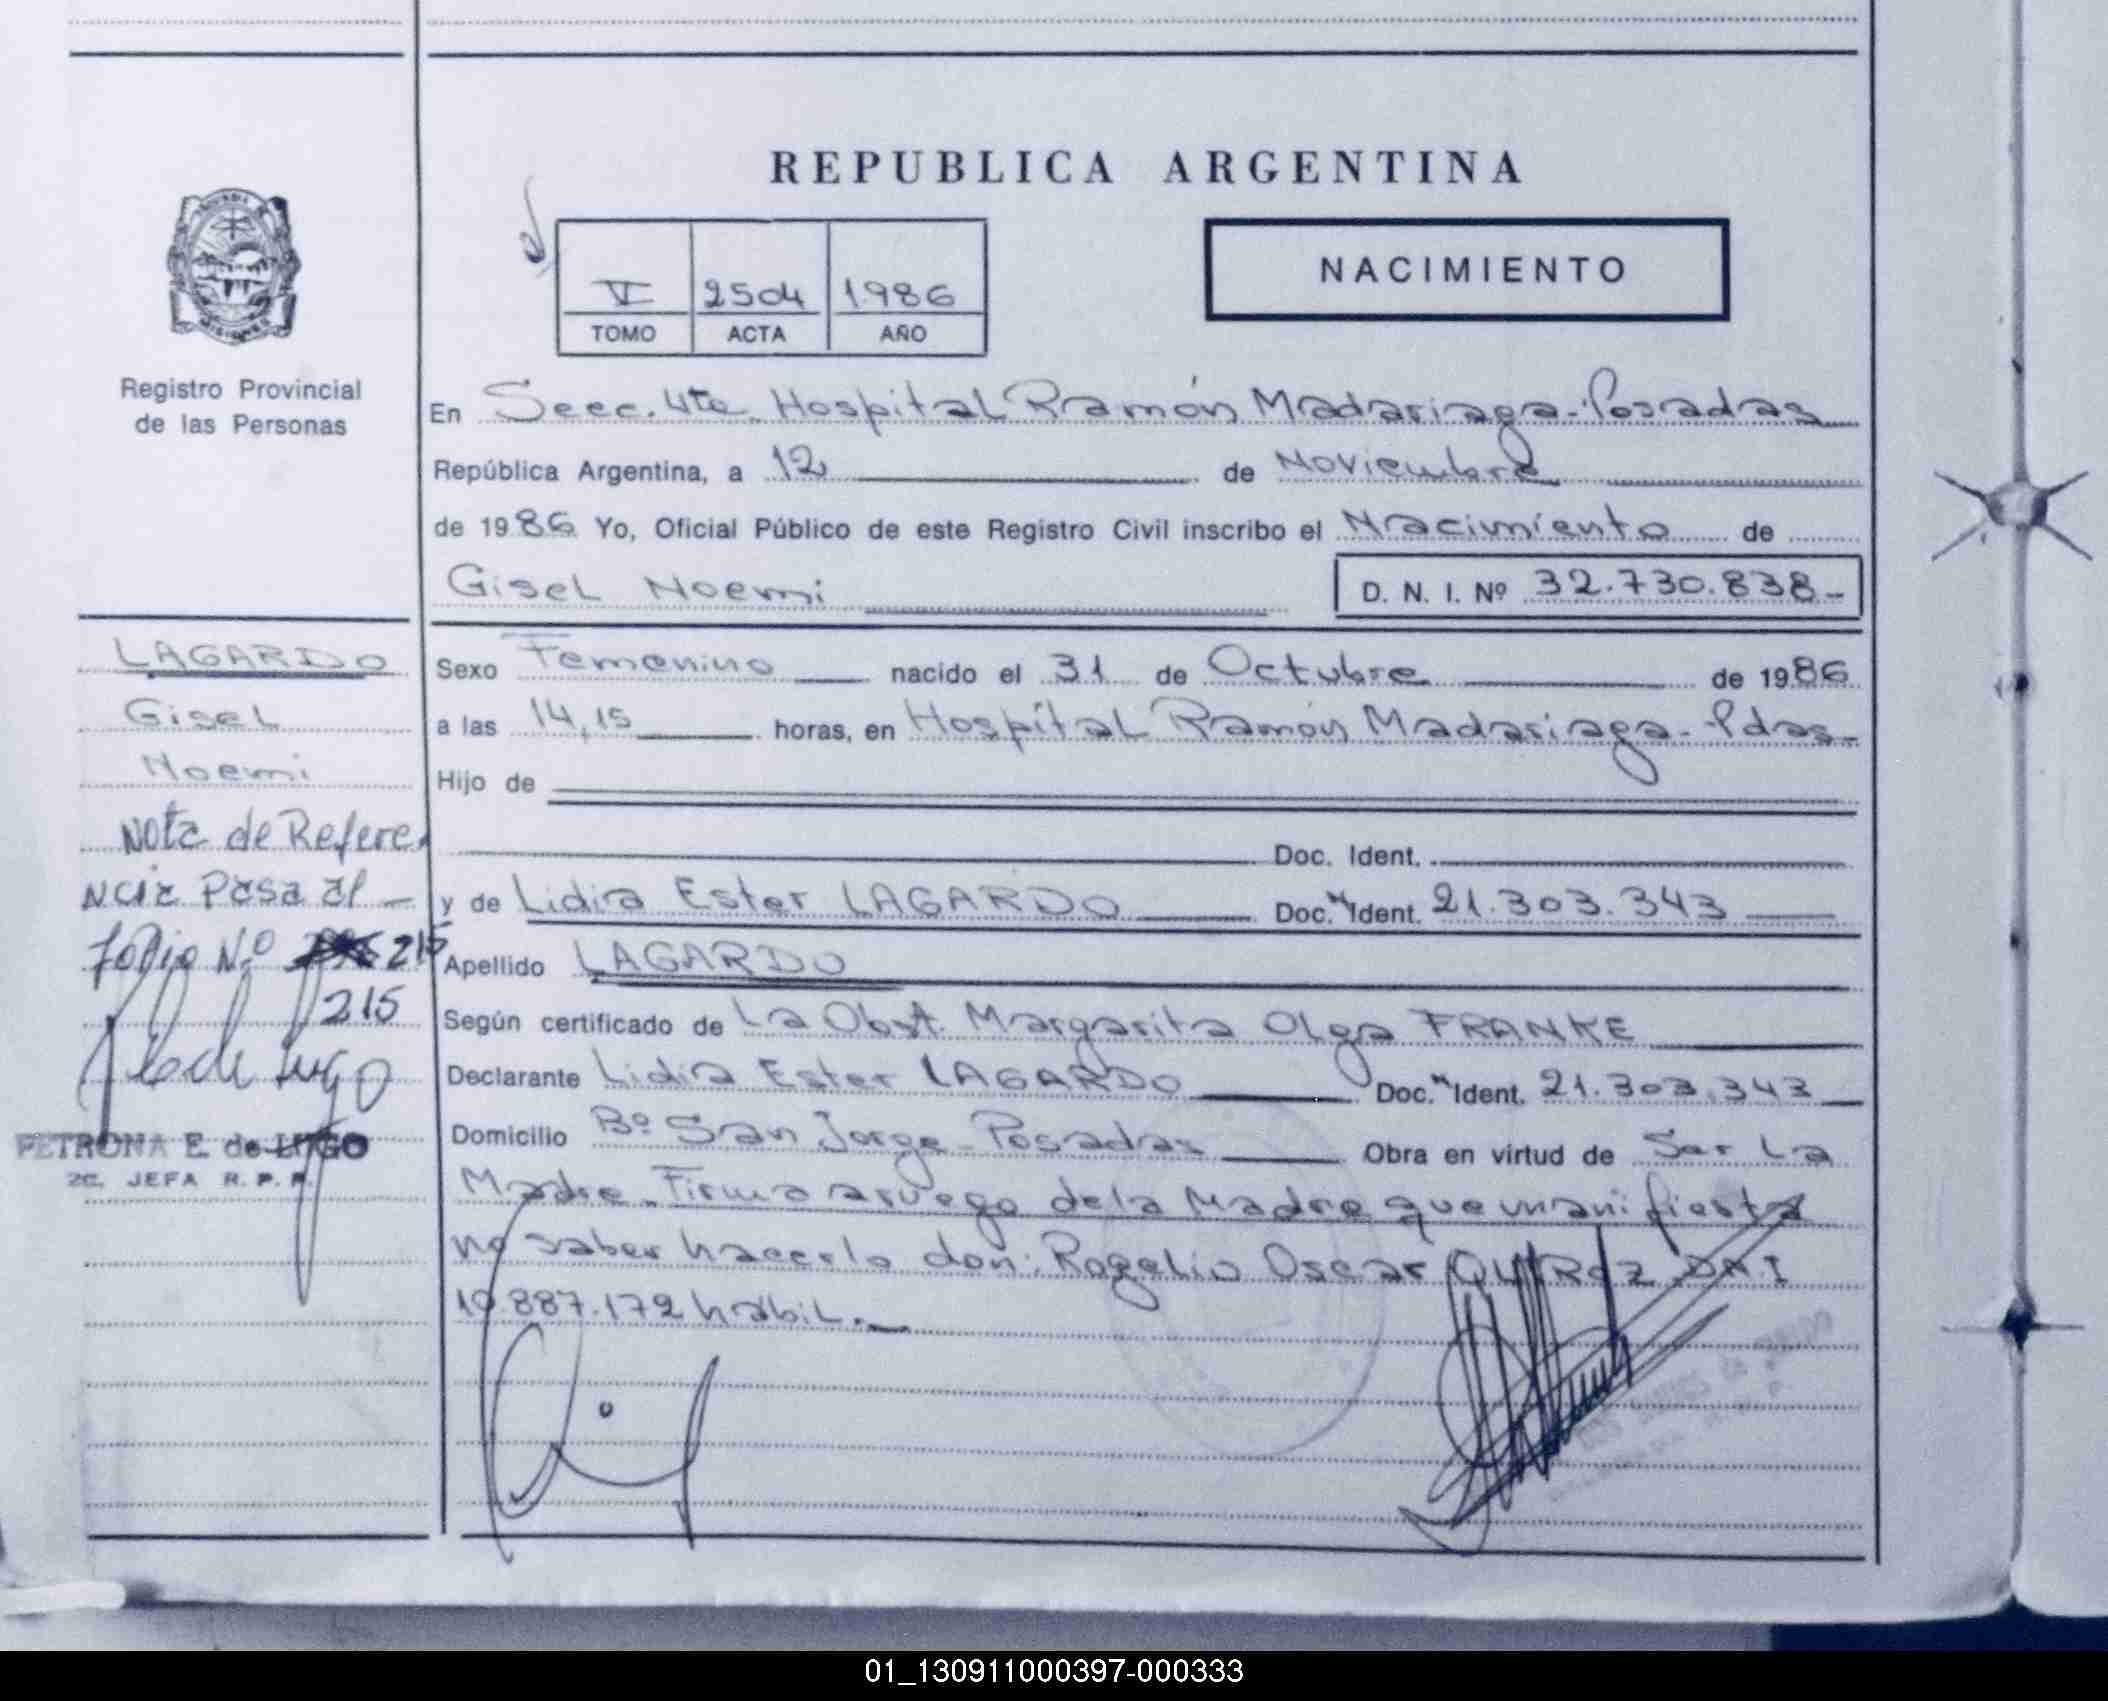 REPUBLICA ARGENTINA
VI 2504 1986
TOMO ACTA AÑO
NACIMIENTO
Registro Provincial
de las Personas
En Secc. 4ta. Hospital Ramón Madariaga - Posadas
República Argentina, a 12 de Noviembre
de 1986 Yo, Oficial Público de este Registro Civil inscribo el Nacimiento de
Gisel Noemi D. N. I. Nº 32.730.838-
LAGARDO
Gisel
Noemi
Nota de Referen
ncia Pasa al -
Folio Nº 215
215
PETRONA E. de LUGO
2C. JEFA R. P. P.
Sexo Femenino nacido el 31 de Octubre de 1986
a las 14,15 horas, en Hospital Ramón Madariaga - Pdas-
Hijo de
Doc. Ident.
y de Lidia Ester LAGARDO Doc. Ident. 21.303.343
Apellido LAGARDO
Según certificado de La Obst. Margarita Olga FRANKE
Declarante Lidia Ester LAGARDO Doc. Ident. 21.303.343
Domicilio Bº San Jorge - Posadas Obra en virtud de Ser La
Madre. Firma a ruego de la Madre que manifiesta
no saber hacerlo don: Rogelio Oscar QUIROZ DNI
10.887.172 habil.-
01_130911000397-000333